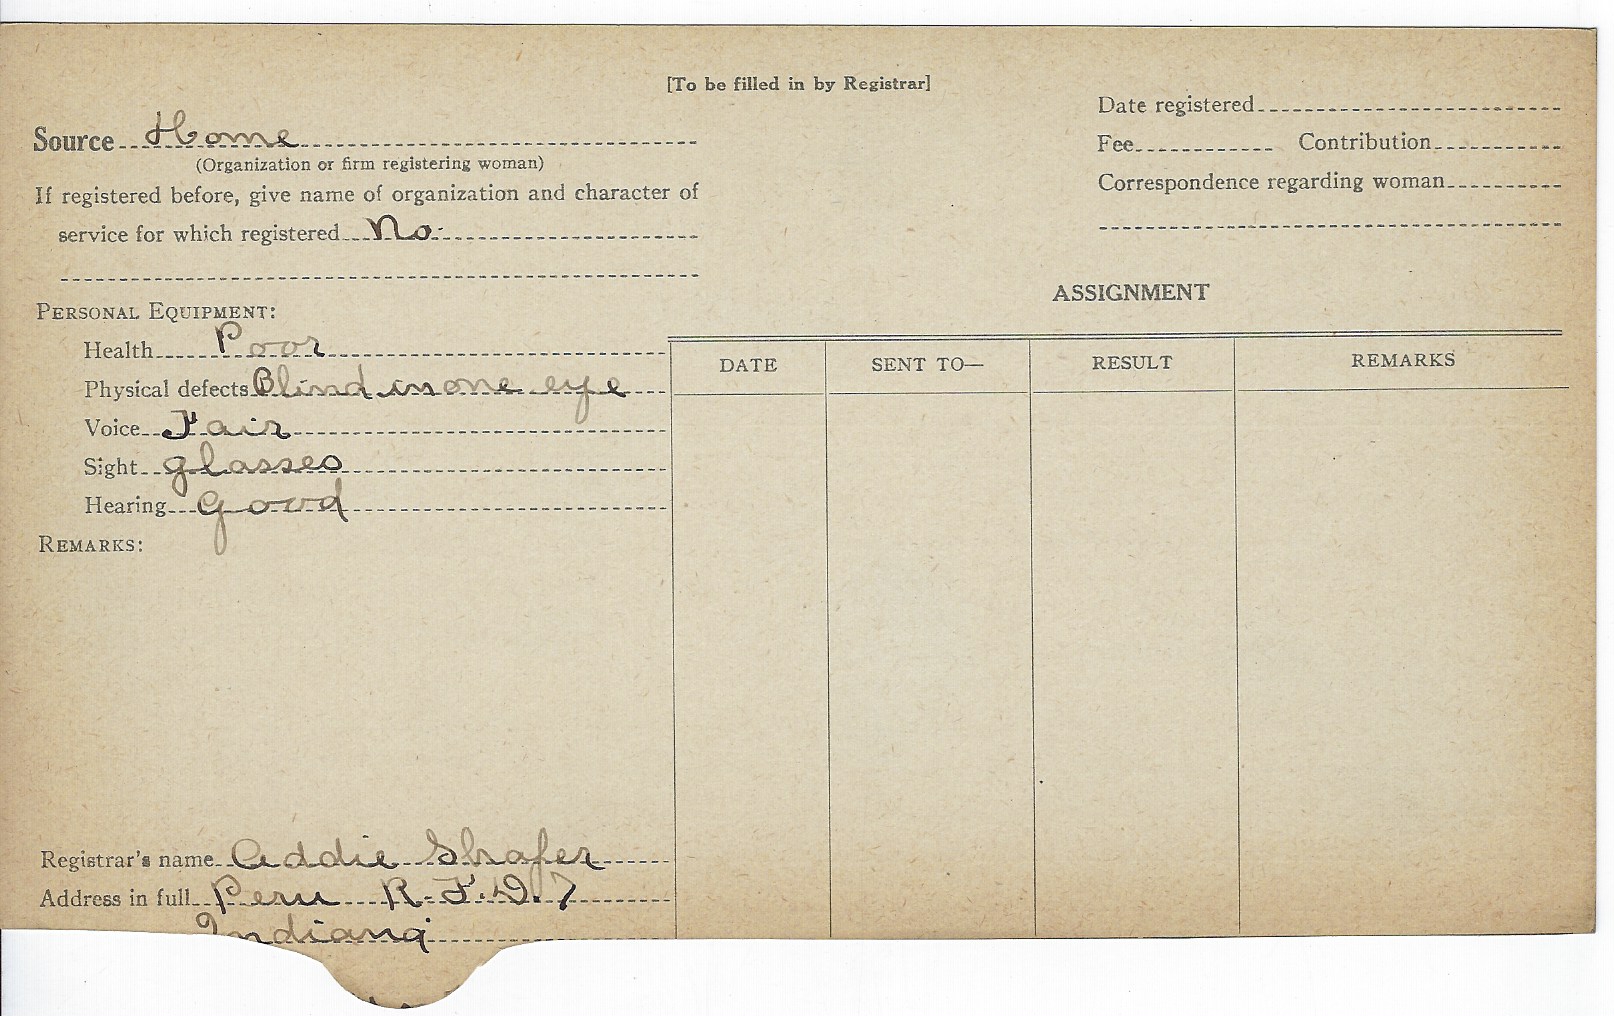 [To be filled in by Registrar]
Source Home
(Organization or firm registering woman)
If registered before, give name of organization and character of
service for which registered No.
Date registered
Fee Contribution
Correspondence regarding woman
PERSONAL EQUIPMENT:
Health Poor
Physical defects Blind in one eye
Voice Fair
Sight glasses
Hearing Good
REMARKS:
Registrar's name Addie Shafer
Address in full Peru R.F.D. 7
Indiana
ASSIGNMENT
DATE SENT TO— RESULT REMARKS